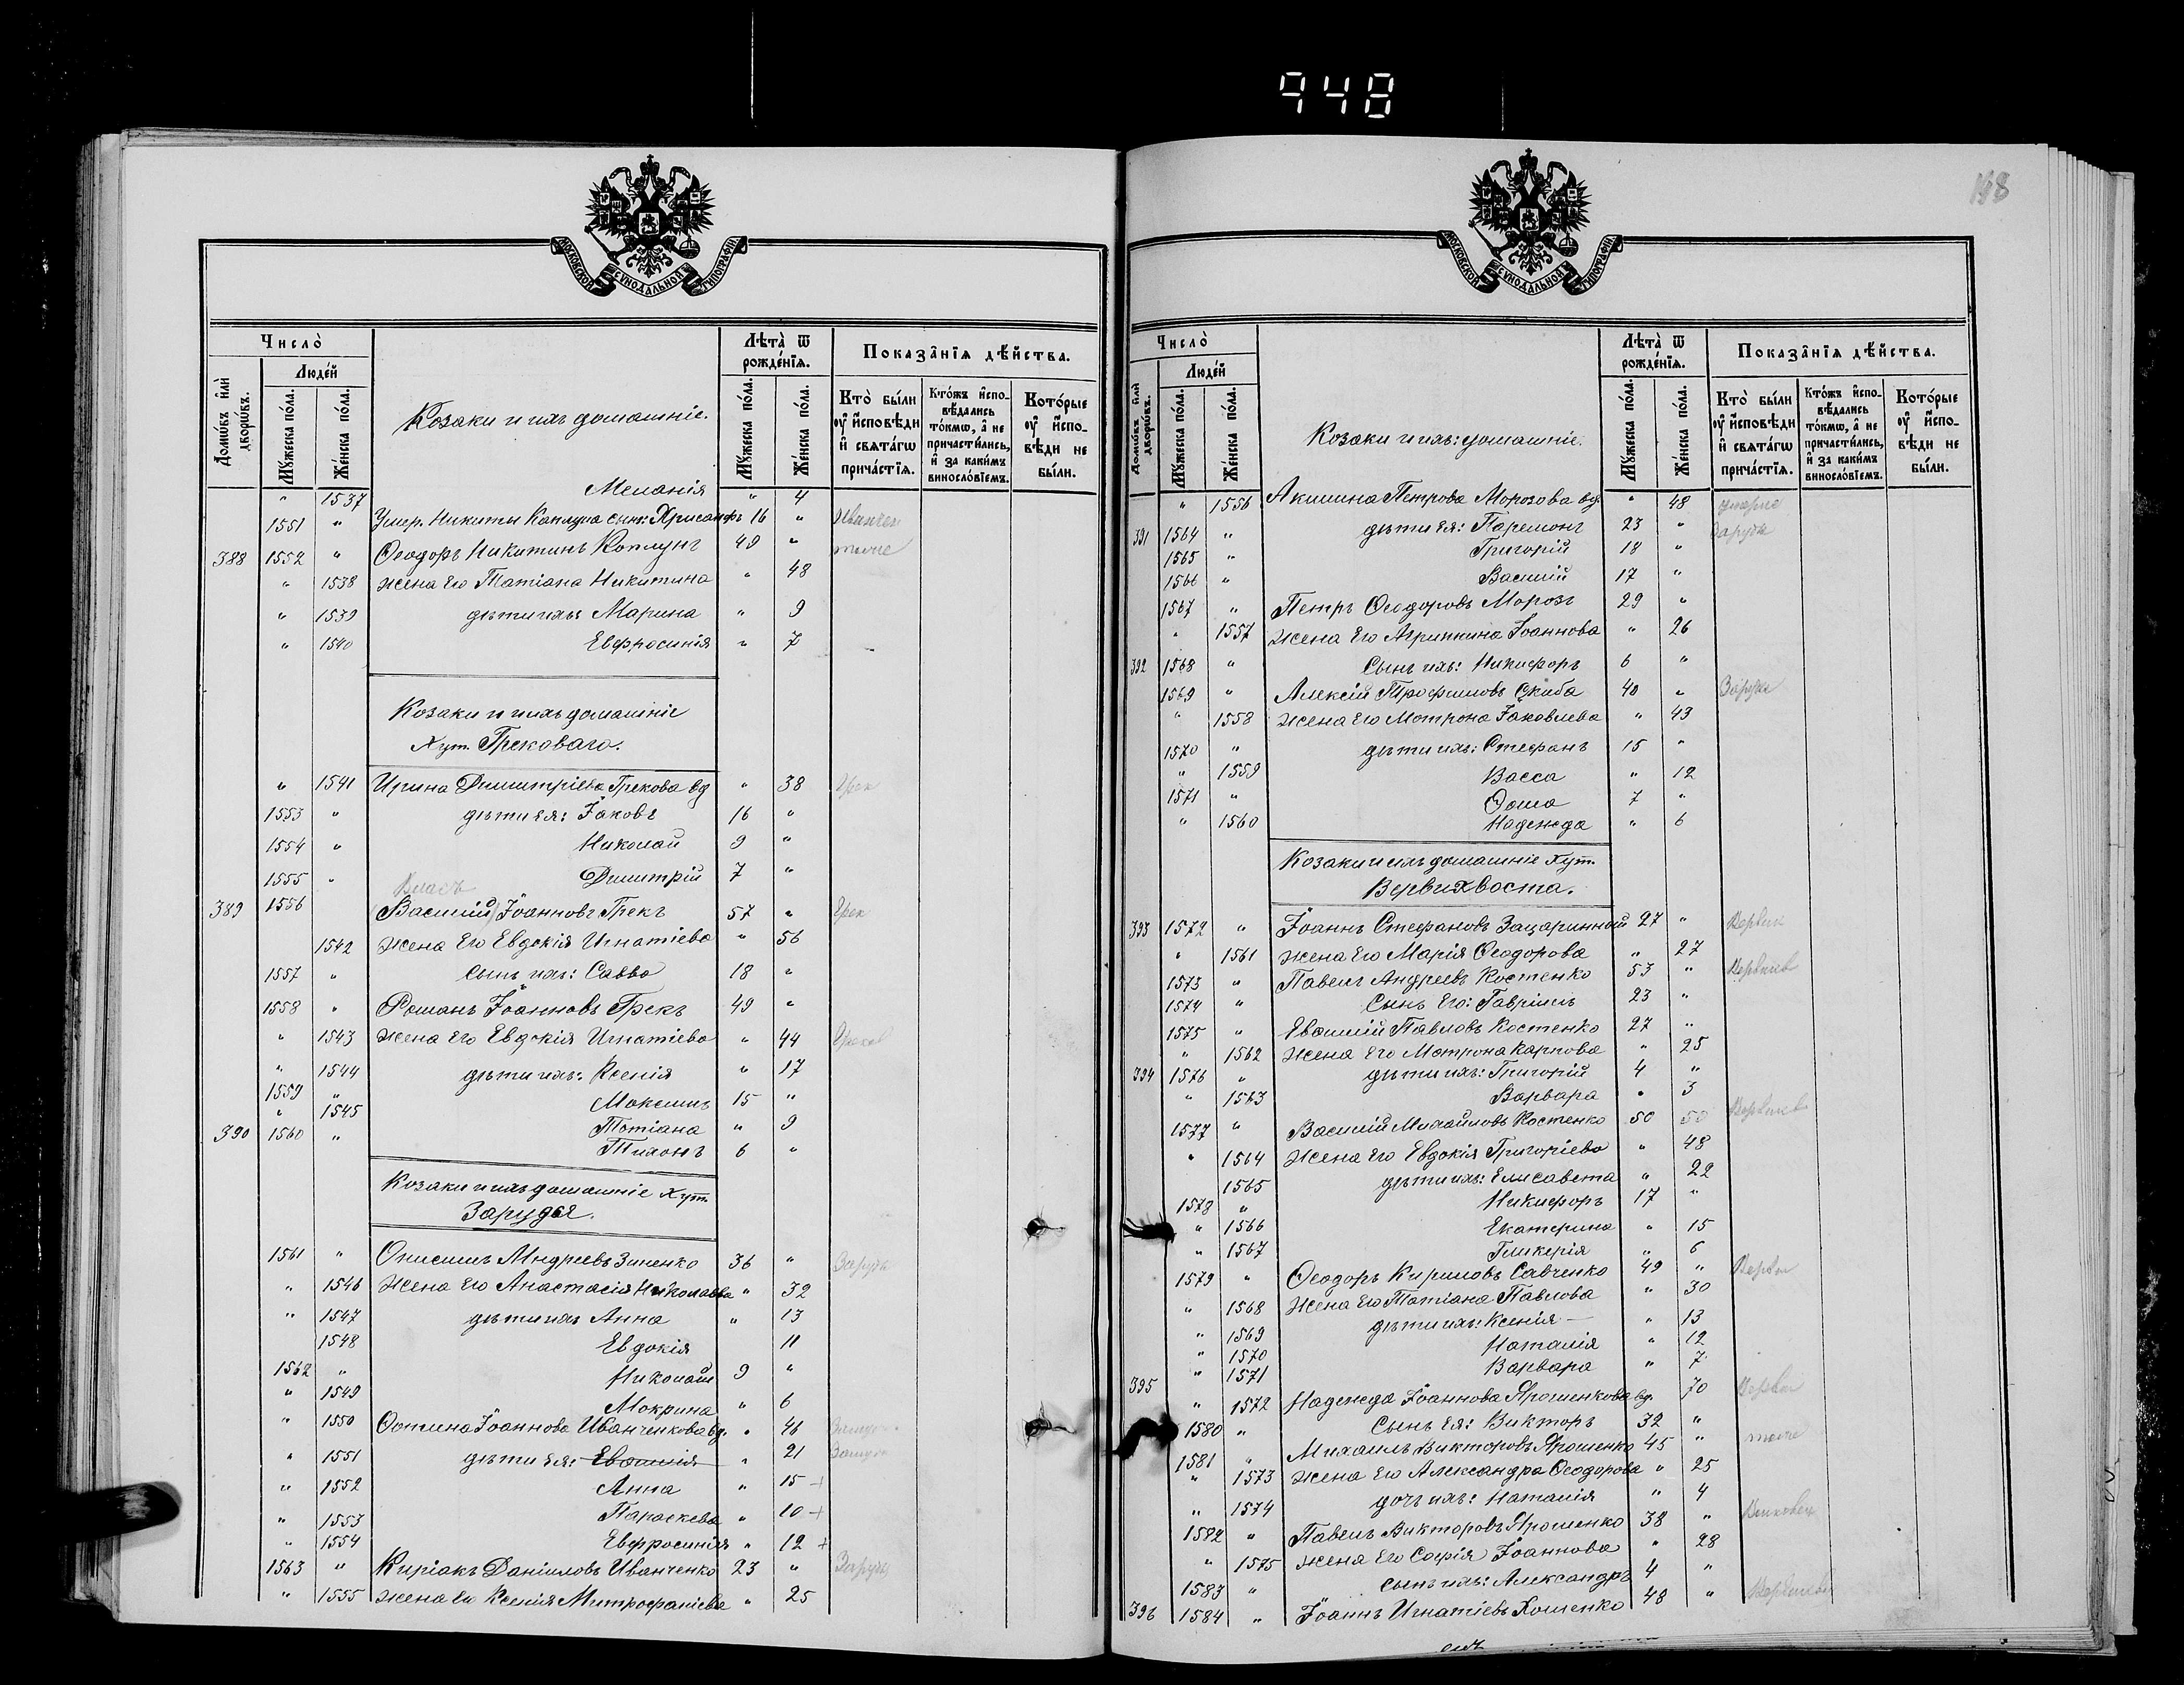 948
148
МОСКОВСКОЙ СУНОДАЛЬНОЙ ТИПОГРАФІИ
Число̀
Домѡ́въ и҆лѝ дворѡ́въ.
Люде́й
Мꙋ́жеска по́ла.
Же́нска по́ла.
Козаки и ихъ домашніе.
Лѣта̀ ѿ рожде́нїѧ.
Мꙋ́жеска по́ла.
Же́нска по́ла.
Показа̑нїѧ дѣ́йства.
Кто̀ бы́ли оу҆ и҆сповѣди и҆ свѧта́гѡ прича́стїѧ.
Кто́жъ и҆спо-вѣ́дались то́кмѡ, а҆ не причасти́лись, и҆ за каки́мъ виносло́вїемъ.
Кото́рые оу҆ и҆спо-вѣди не бы́ли.
" 1537 Меланія " 4
1551 " Умер. Никиты сынъ: Хрисанфъ 16 "
388 1552 " Ѳеодоръ Никитинъ 49 " тоже
" 1538 жена его Татіана Никитина " 48
" 1539 дѣти ихъ: Марина " 9
" 1540 Евфросинія " 7
Козаки и ихъ домашніе
Хут. Грековаго.
" 1541 Ирина Димитріева Грекова вд " 38 Грек
1553 " дѣти ея: Іаковъ 16 "
1554 " Николай 9 "
1555 " Димитрій 7 "
Власъ
389 1556 (Василій) Іоанновъ Грекъ 57 " Грек
1542 жена его Евдокія Игнатіева " 56
1557 " сынъ ихъ: Савва 18 "
1558 " Романъ Іоанновъ Грекъ 49 "
" 1543 жена его Евдокія Игнатіева " 44
" 1544 дѣти ихъ: Ксенія " 17
1559 " Максимъ 15 "
" 1545 Татіана " 9
390 1560 " Тихонъ 6 "
Козаки и ихъ домашніе Хут.
Зарудья.
1561 " Онисимъ Андреевъ Зиненко 36 "
" 1546 жена его Анастасія Николаева " 32
" 1547 дѣти ихъ Анна " 13
1548 Евдокія 11
1562 " Николай 9 "
" 1549 Мокрина " 6
" 1550 Іоаннова Иванченкова вд. " 46
" 1551 дѣти ея: Евфимія " 21
" 1552 Анна " 15 +
" 1553 Параскева " 10 +
" 1554 Евфросинія " 12 +
1563 " Киріакъ Даніиловъ Иванченко 23 "
" 1555 жена его Ксенія Митрофаніева " 25
МОСКОВСКОЙ СУНОДАЛЬНОЙ ТИПОГРАФІИ
Число̀
Домѡ́въ и҆лѝ дворѡ́въ.
Люде́й
Мꙋ́жеска по́ла.
Же́нска по́ла.
Козаки и ихъ: домашніе.
Лѣта̀ ѿ рожде́нїѧ.
Мꙋ́жеска по́ла.
Же́нска по́ла.
Показа̑нїѧ дѣ́йства.
Кто̀ бы́ли оу҆ и҆сповѣди и҆ свѧта́гѡ прича́стїѧ.
Кто́жъ и҆спо-вѣ́дались то́кмѡ, а҆ не причасти́лись, и҆ за каки́мъ виносло́вїемъ.
Кото́рые оу҆ и҆спо-вѣди не бы́ли.
" 1556 Акилина Петрова Морозова вд. " 48
391 1564 " дѣти ея: Парамонъ 23 "
1565 " Григорій 18 "
1566 " Василій 17 "
1567 " Петръ Ѳеодоровъ Морозъ 29 "
" 1557 жена его Агриппина Іоаннова " 26
392 1568 " сынъ ихъ: Никифоръ 6 "
1569 " Алексій Трофимовъ Скиба 40 "
" 1558 жена его Мотрона Іаковлева " 43
1570 " дѣти ихъ: Стефанъ 15 "
" 1559 Васса " 12
1571 " Ѳома 7 "
" 1560 Надежда " 6
Козаки и ихъ домашніе Хут.
Вервихвоста.
393 1572 " Іоаннъ Стефановъ Зацаринный 27 "
" 1561 жена его Марія Ѳеодорова " 27
1573 " Павелъ Андреевъ Костенко 53 "
1574 " Сынъ его: Гавріилъ 23 "
1575 " Евфимій Павловъ Костенко 27 "
" 1562 жена его Мотрона Карпова " 25
394 1576 " дѣти ихъ: Григорій 4 "
" 1563 Варвара " 3
1577 " Василій Михайловъ Костенко 50 50
" 1564 жена его Евдокія Григоріева " 48
1565 дѣти ихъ: Елисавета " 22
1578 " Никифоръ 17 "
" 1566 Екатерина " 15
" 1567 Гликерія " 6
1579 " Ѳеодоръ Кириловъ Савченко 49 "
" 1568 жена его Татіана Павлова " 30
" 1569 дѣти ихъ: Ксенія " 13
" 1570 Наталія " 12
" 1571 Варвара " 7
395 " 1572 Надежда Іоаннова Ярошенкова вд. 70
1580 " Сынъ ея: Викторъ 32 "
1581 " Михаилъ Викторовъ Ярошенко 45 " тоже
" 1573 жена его Александра Ѳеодорова " 25
" 1574 дочь ихъ: Наталія " 4
1582 " Павелъ Викторовъ Ярошенко 38 "
" 1575 жена его Софія Іоаннова " 28
1583 " сынъ ихъ: Александръ 4 "
396 1584 " Іоаннъ Игнатіевъ Хоменко 48 "